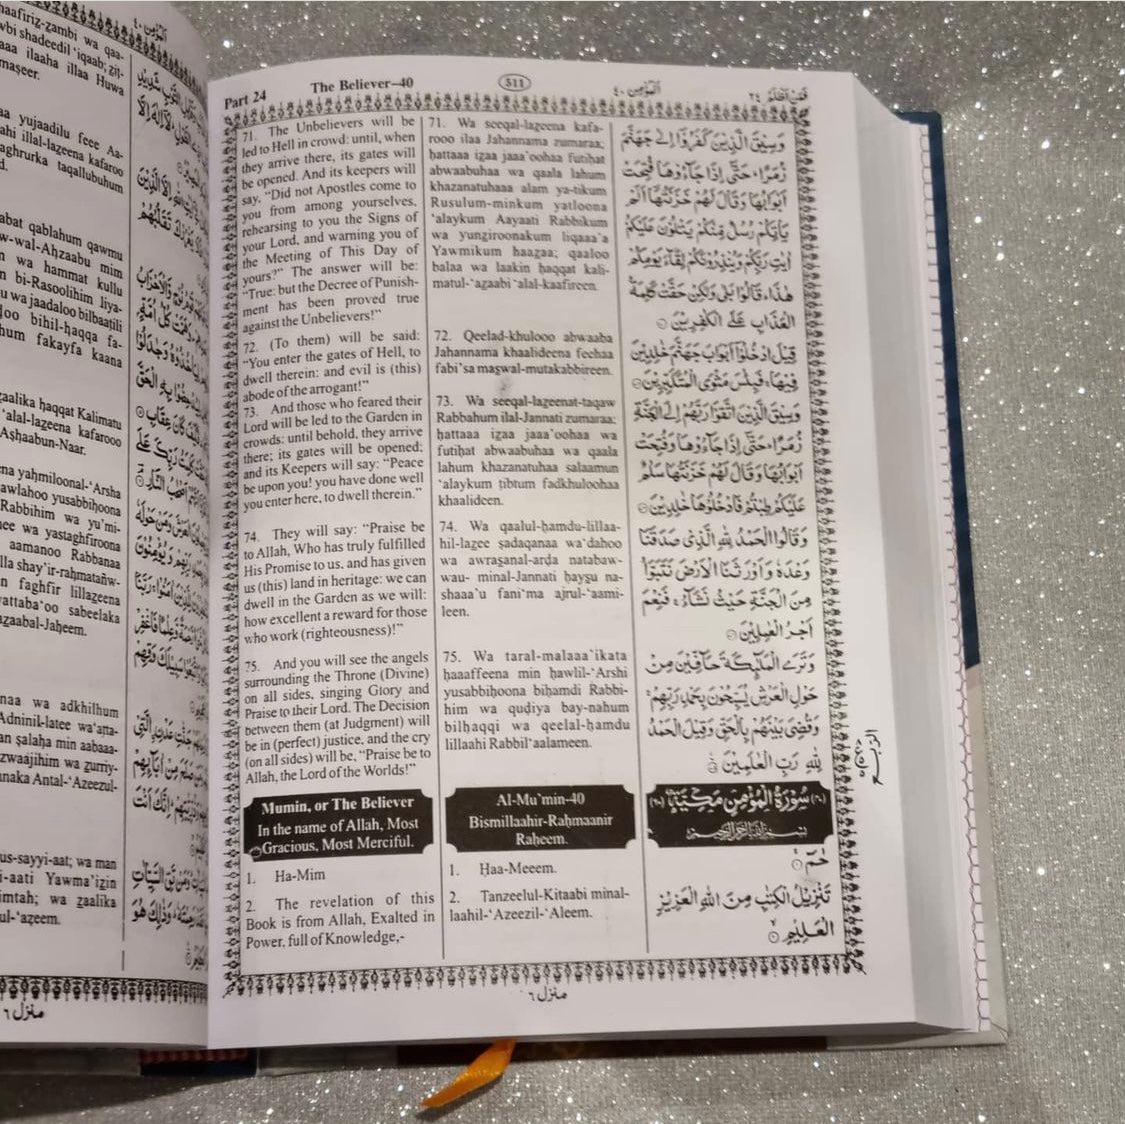 haafiriz-zambi wa qaa-
wbi shadeedil ‘iqaab; zit-
aaa ilaaha illaa Huwa
maṣeer.
aa yujaadilu feee Aa-
ahi illal-lazeena kafaroo
aghrurka taqallubuhum
d.
abat qablahum qawmu
w-wal-Aḥzaabu mim
n wa hammat kullu
n bi-Rasoolihim liya-
u wa jaadaloo bilbaaṭili
ḍoo bihil-ḥaqqa fa-
hum fakayfa kaana
zaalika ḥaqqat Kalimatu
‘alal-lazeena kafarooo
Aṣḥaabun-Naar.
na yaḥmiloonal-‘Arsha
awlahoo yusabbiḥoona
Rabbihim wa yu’mi-
hee wa yastaghfiroona
aamanoo Rabbanaa
lla shay’ir-raḥmatañw-
n faghfir lillazeena
vattaba‘oo sabeelaka
azaabal-Jaḥeem.
naa wa adkhilhum
Adninil-latee wa‘atta-
an ṣalaḥa min aabaaa-
zwaajihim wa zurriy-
nnaka Antal-‘Azeezul-
us-sayyi-aat; wa man
i-aati Yawma’izin
imtah; wa zaalika
ul-‘aẓeem.
منزل ٦
Part 24
The Believer–40
511
المؤمن ٤٠
فمن اظلم ٢٤
71. The Unbelievers will be
led to Hell in crowd: until, when
they arrive there, its gates will
be opened. And its keepers will
say, “Did not Apostles come to
you from among yourselves,
rehearsing to you the Signs of
your Lord, and warning you of
the Meeting of This Day of
yours?” The answer will be:
“True: but the Decree of Punish-
ment has been proved true
against the Unbelievers!”
72. (To them) will be said:
“You enter the gates of Hell, to
dwell therein: and evil is (this)
abode of the arrogant!”
73. And those who feared their
Lord will be led to the Garden in
crowds: until behold, they arrive
there; its gates will be opened;
and its Keepers will say: “Peace
be upon you! you have done well
you enter here, to dwell therein.”
74. They will say: “Praise be
to Allah, Who has truly fulfilled
His Promise to us, and has given
us (this) land in heritage: we can
dwell in the Garden as we will:
how excellent a reward for those
who work (righteousness)!”
75. And you will see the angels
surrounding the Throne (Divine)
on all sides, singing Glory and
Praise to their Lord. The Decision
between them (at Judgment) will
be in (perfect) justice, and the cry
(on all sides) will be, “Praise be to
Allah, the Lord of the Worlds!”
Mumin, or The Believer
In the name of Allah, Most
Gracious, Most Merciful.
1. Ha-Mim
2. The revelation of this
Book is from Allah, Exalted in
Power, full of Knowledge,-
71. Wa seeqal-lazeena kafa-
rooo ilaa Jahannama zumaraa;
ḥattaaa izaa jaaa’oohaa futiḥat
abwaabuhaa wa qaala lahum
khazanatuhaaa alam ya-tikum
Rusulum-minkum yatloona
‘alaykum Aayaati Rabbikum
wa yunziroonakum liqaaa’a
Yawmikum haazaa; qaaloo
balaa wa laakin ḥaqqat kali-
matul-‘azaabi ‘alal-kaafireen.
72. Qeelad-khulooo abwaaba
Jahannama khaalideena feehaa
fabi’sa maṣwal-mutakabbireen.
73. Wa seeqal-lazeenat-taqaw
Rabbahum ilal-Jannati zumaraa;
ḥattaaa izaa jaaa’oohaa wa
futiḥat abwaabuhaa wa qaala
lahum khazanatuhaa salaamun
‘alaykum ṭibtum fadkhuloohaa
khaalideen.
74. Wa qaalul-ḥamdu-lillaa-
hil-lazee ṣadaqanaa wa‘dahoo
wa awraṣanal-arḍa natabaw-
wau- minal-Jannati ḥayṣu na-
shaaa’u fani‘ma ajrul-‘aami-
leen.
75. Wa taral-malaaa’ikata
ḥaaaffeena min ḥawlil-‘Arshi
yusabbiḥoona biḥamdi Rabbi-
him wa quḍiya bay-nahum
bilḥaqqi wa qeelal-ḥamdu
lillaahi Rabbil‘aalameen.
Al-Mu’min-40
Bismillaahir-Raḥmaanir
Raḥeem.
1. Haa-Meeem.
2. Tanzeelul-Kitaabi minal-
laahil-‘Azeezil-‘Aleem.
وَسِيْقَ الَّذِيْنَ كَفَرُوْٓا اِلٰى جَهَنَّمَ
زُمَرًا ؕ حَتّٰٓى اِذَا جَآءُوْهَا فُتِحَتْ
اَبْوَابُهَا وَقَالَ لَهُمْ خَزَنَتُهَآ اَلَمْ
يَاْتِكُمْ رُسُلٌ مِّنْكُمْ يَتْلُوْنَ عَلَيْكُمْ
اٰيٰتِ رَبِّكُمْ وَيُنْذِرُوْنَكُمْ لِقَآءَ يَوْمِكُمْ
هٰذَا ؕ قَالُوْا بَلٰى وَلٰكِنْ حَقَّتْ كَلِمَةُ
الْعَذَابِ عَلَى الْكٰفِرِيْنَ
قِيْلَ ادْخُلُوْٓا اَبْوَابَ جَهَنَّمَ خٰلِدِيْنَ
فِيْهَا ۚ فَبِئْسَ مَثْوَى الْمُتَكَبِّرِيْنَ
وَسِيْقَ الَّذِيْنَ اتَّقَوْا رَبَّهُمْ اِلَى الْجَنَّةِ
زُمَرًا ؕ حَتّٰٓى اِذَا جَآءُوْهَا وَفُتِحَتْ
اَبْوَابُهَا وَقَالَ لَهُمْ خَزَنَتُهَا سَلٰمٌ
عَلَيْكُمْ طِبْتُمْ فَادْخُلُوْهَا خٰلِدِيْنَ
وَقَالُوا الْحَمْدُ لِلّٰهِ الَّذِيْ صَدَقَنَا
وَعْدَهٗ وَاَوْرَثَنَا الْاَرْضَ نَتَبَوَّاُ
مِنَ الْجَنَّةِ حَيْثُ نَشَآءُ ۚ فَنِعْمَ
اَجْرُ الْعٰمِلِيْنَ
وَتَرَى الْمَلٰٓئِكَةَ حَآفِّيْنَ مِنْ
حَوْلِ الْعَرْشِ يُسَبِّحُوْنَ بِحَمْدِ رَبِّهِمْ ۚ
وَقُضِيَ بَيْنَهُمْ بِالْحَقِّ وَقِيْلَ الْحَمْدُ
لِلّٰهِ رَبِّ الْعٰلَمِيْنَ
سُوْرَةُ الْمُؤْمِنِ مَكِّيَّةٌ
بِسْمِ اللّٰهِ الرَّحْمٰنِ الرَّحِيْمِ
حٰمٓ
تَنْزِيْلُ الْكِتٰبِ مِنَ اللّٰهِ الْعَزِيْزِ
الْعَلِيْمِ
منزل ٦